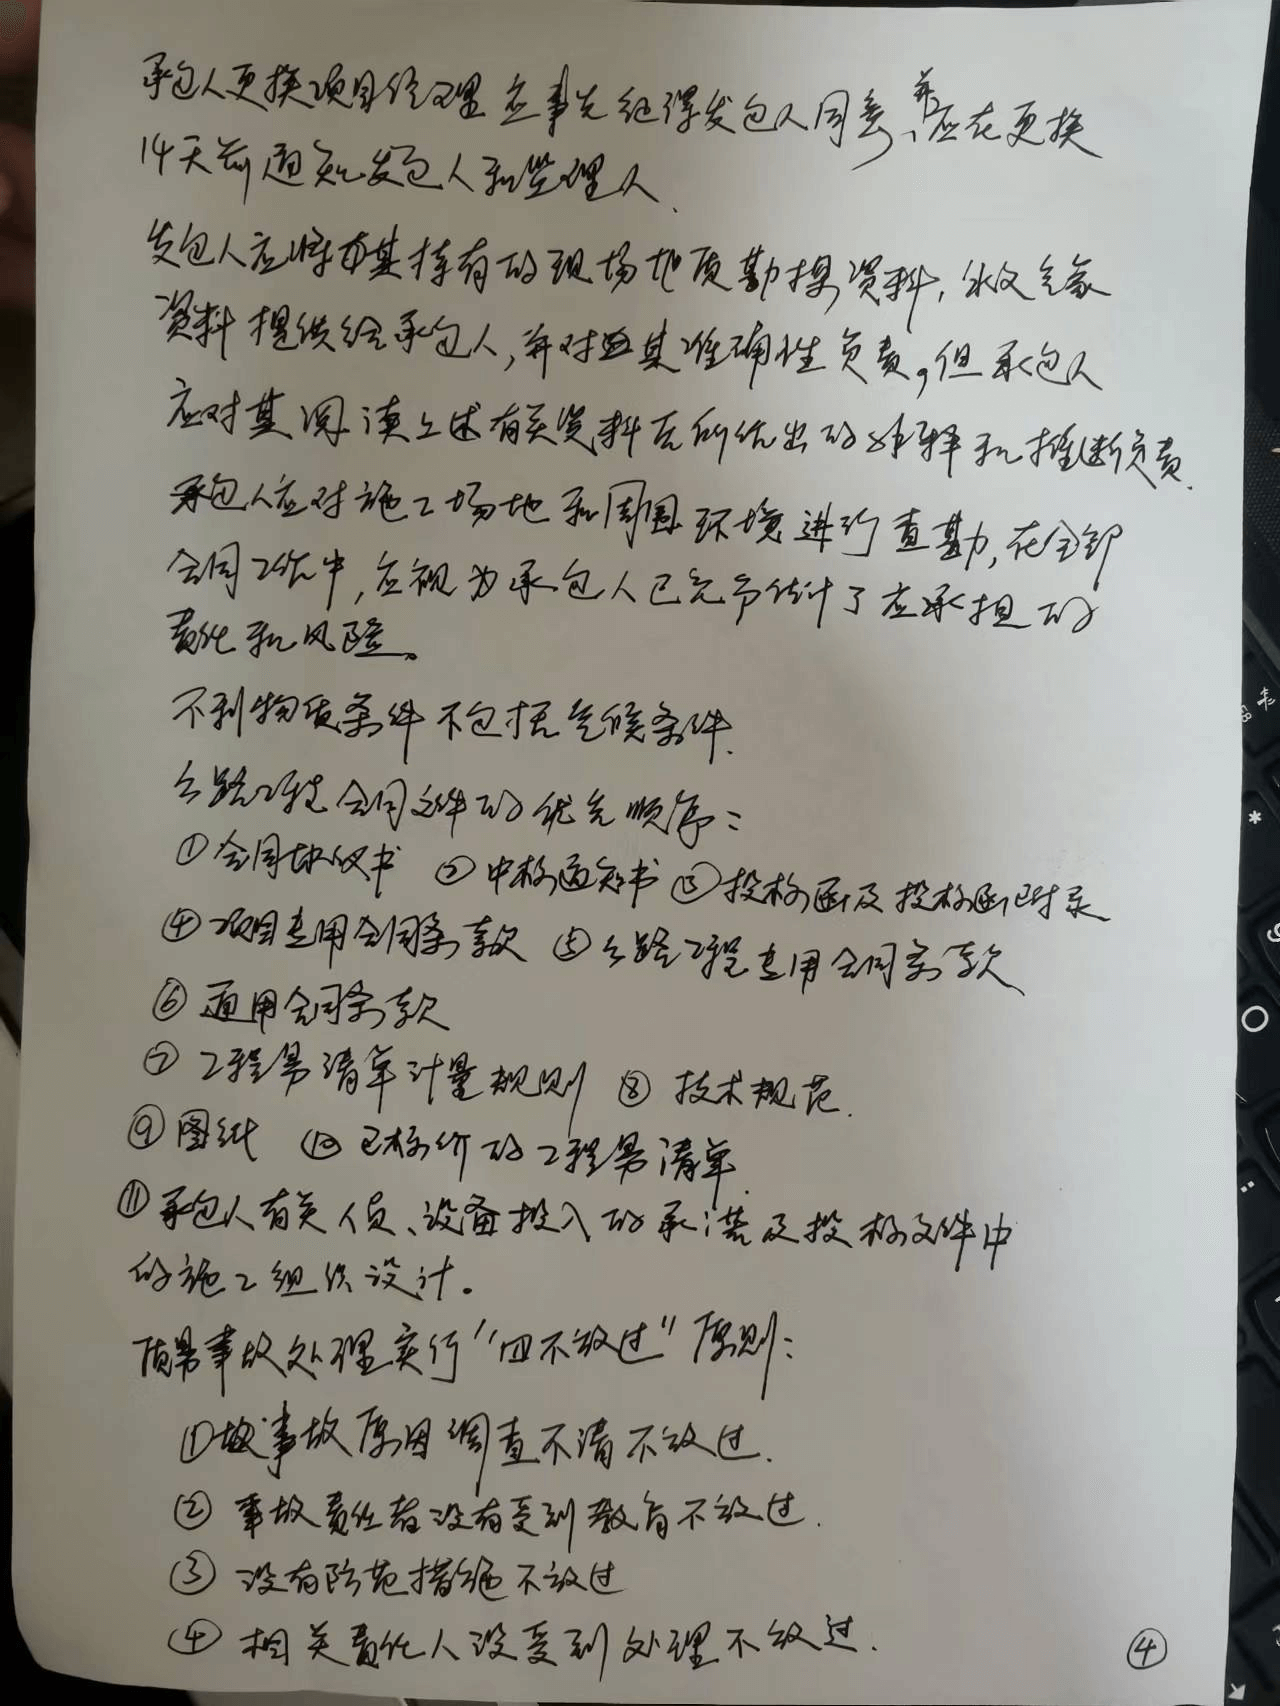 承包人更换项目经理应事先征得发包人同意、并应在更换
14天前通知发包人和监理人.
发包人应将其持有的现场地质勘探资料,水文气象
资料提供给承包人,并对其准确性负责,但承包人
应对其阅读上述有关资料后所作出的解释和推断负责.
承包人应对施工场地和周围环境进行查勘,在全部
合同工作中,应视为承包人已充分估计了应承担的
责任和风险。
不利物质条件不包括气候条件.
公路工程合同文件的优先顺序:
①合同协议书 ②中标通知书 ③投标函及投标函附录
④项目专用合同条款 ⑤公路工程专用合同条款
⑥通用合同条款
⑦工程量清单计量规则 ⑧技术规范.
⑨图纸 ⑩已标价的工程量清单.
⑪承包人有关人员、设备投入的承诺及投标文件中
的施工组织设计。
质量事故处理实行"四不放过"原则:
①事故原因调查不清不放过.
②事故责任者没有受到教育不放过.
③没有防范措施不放过
④相关责任人没受到处理不放过.
④